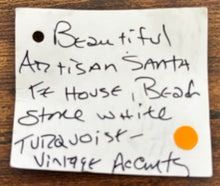 Beautiful
Artisan Santa
Fe House, Beach
Stone White
Turquoise -
Vintage Accents